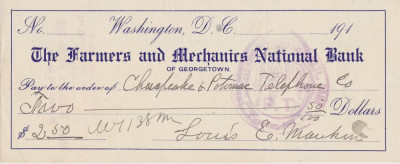 No. Washington, D. C. 191
The Farmers and Mechanics National Bank
OF GEORGETOWN.
Pay to the order of Chesapeake & Potomac Telephone Co
Two 50/100 Dollars
$ 2.50
Louis E. Mankin